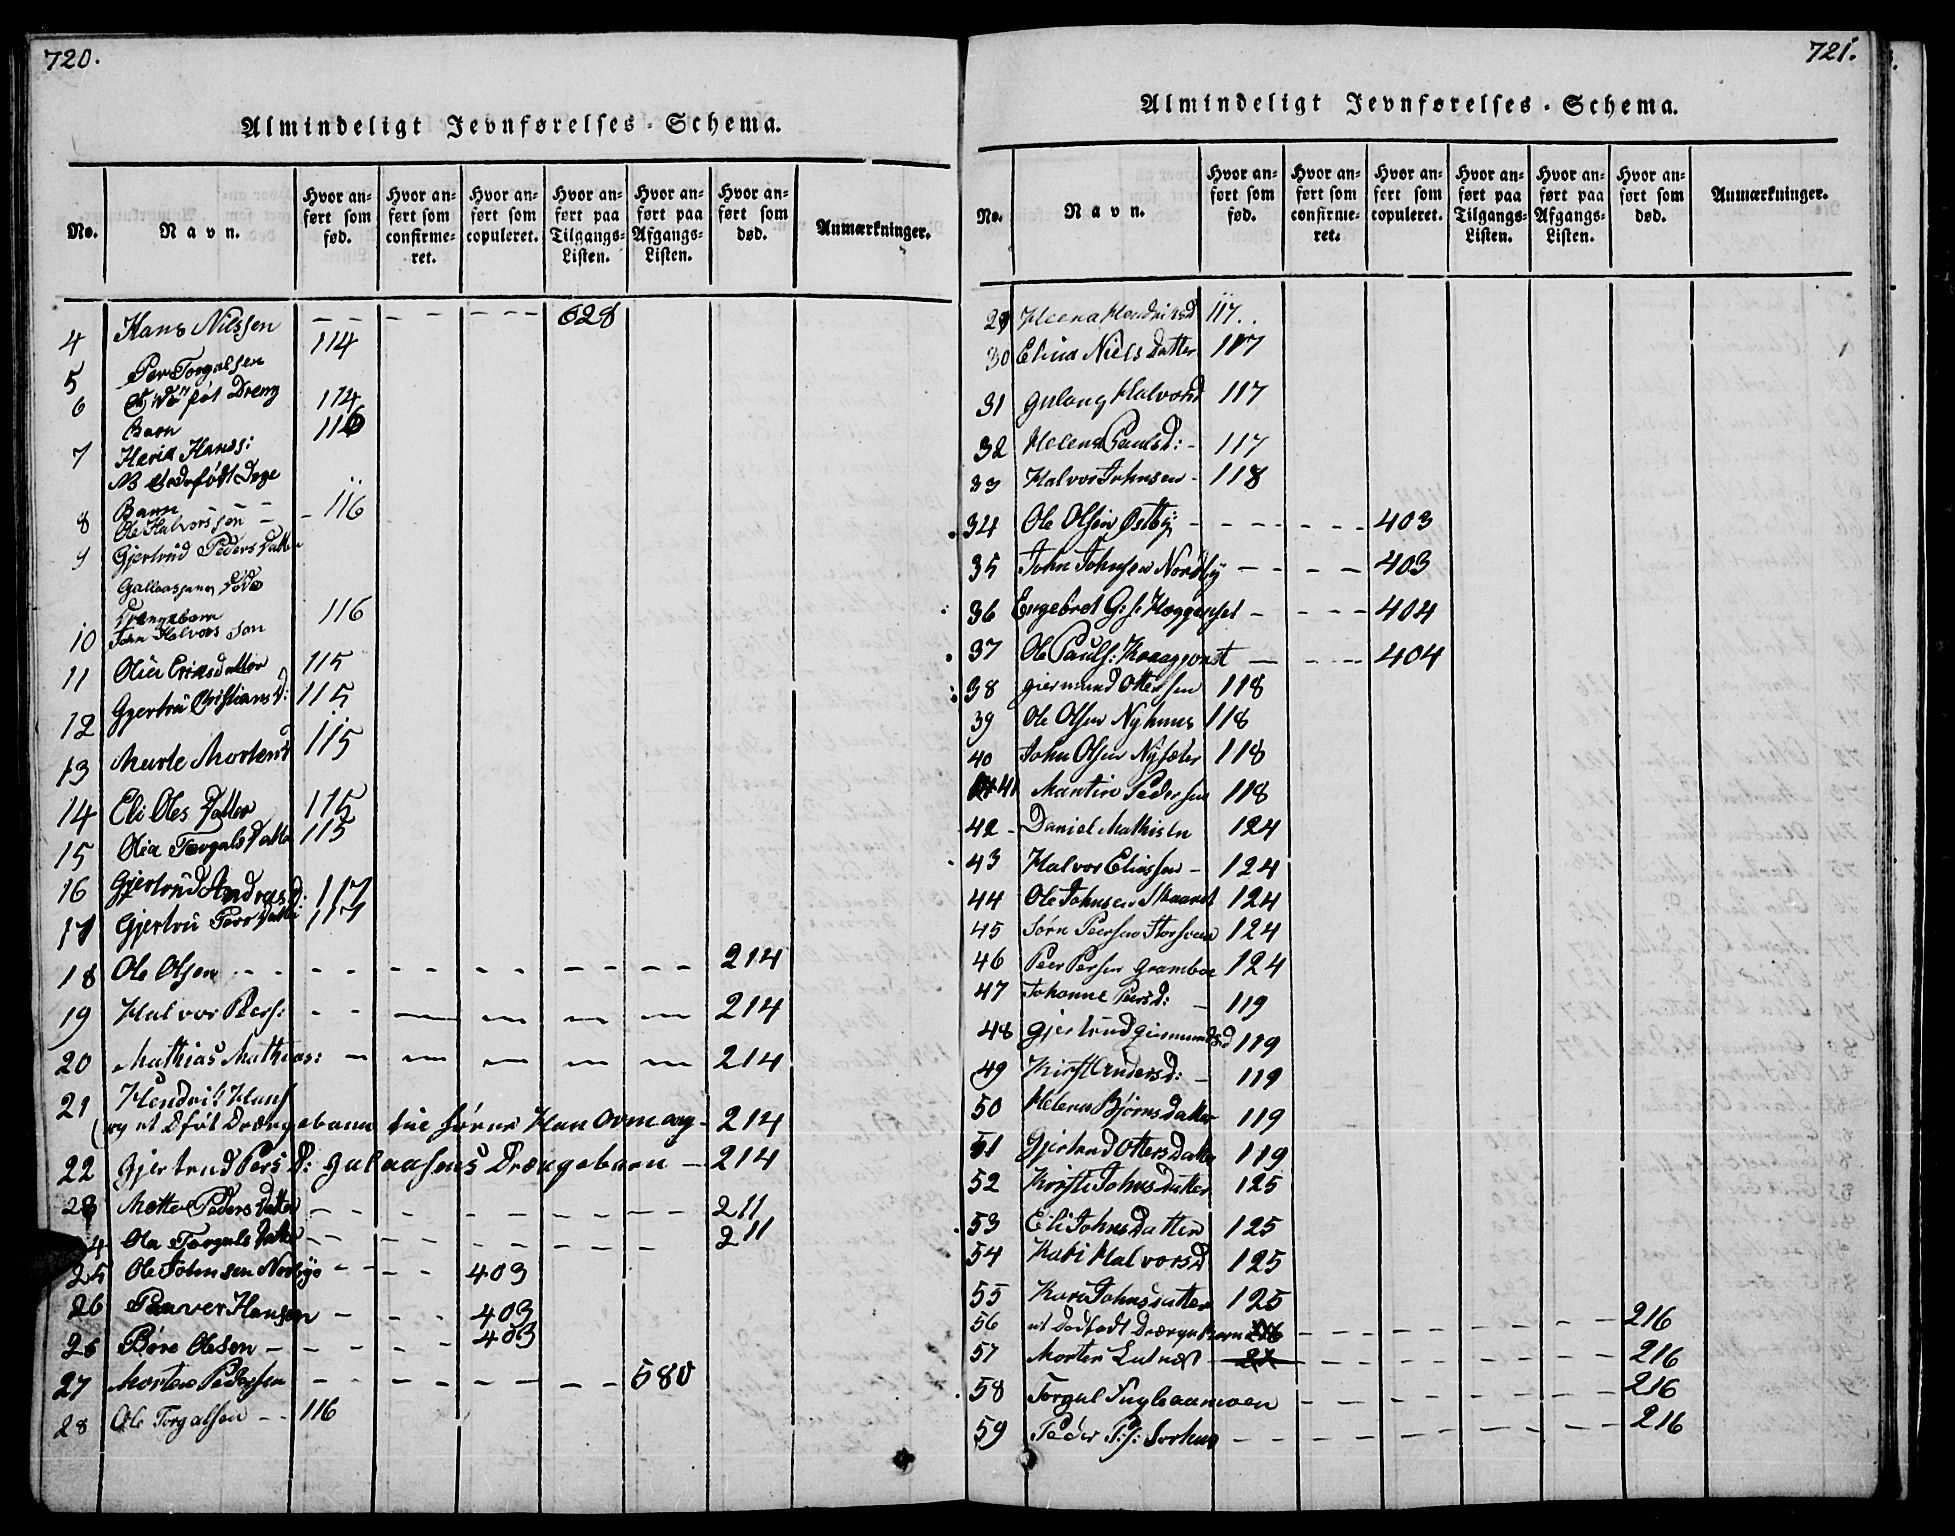 720.
Almindeligt Jevnførelses-Schema.
No. Navn. Hvor anført som fød. Hvor anført som confirmeret. Hvor anført som copuleret. Hvor anført paa Tilgangs-Listen. Hvor anført paa Afgangs-Listen. Hvor anført som død. Anmærkninger.
4 Hans Nilssen 628
5 Per Torgalsen 114
6 Dreng 114
Barn 116
7 Hans:
8 Barn 116
Ole Halvorssen
9 Gjertrud Peders Datter
Drengebarn 116
10 John Halvors son
11 Olia Eriksdatter 115
12 Gjertru Christians D: 115
13 Marte Mortensd 115
14 Eli Oles Datter 115
15 Olia Torgals Datter 115
16 Gjertrud Andreas D: 117
17 Gjertru Pers Datter 117
18 Ole Olsen 214
19 Halvor Peers: 214
20 Mathias Mathias: 214
21 Hendrik Hans
214
22 Gjertrud Pers D: Galaasens Drængebarn 214
23 Mette Peders Datter 211
24 Ola Torgals Datter 211
25 Ole Johnsen Nordbye 403
26 Hansen 403
26 Børe Olsen 403
27 Morten Pedersen 580
28 Ole Torgalsen 116
721.
Almindeligt Jevnførelses-Schema.
No. Navn. Hvor anført som fød. Hvor anført som confirmeret. Hvor anført som copuleret. Hvor anført paa Tilgangs-Listen. Hvor anført paa Afgangs-Listen. Hvor anført som død. Anmærkninger.
29 117
30 Elina Niels Datter 117
31 Gulaug Halvorsd 117
32 Helena Paulsd: 117
33 Halvor Johnsen 118
34 Ole Olsen Østby 403
35 John Johnsen Nordby 403
36 Engebret G:s: 404
37 Ole Pauls: 404
38 Giermund Ottersen 118
39 Ole Olsen Nyhuus 118
40 John Olsen Nysæter 118
41 Martin Pedersen 118
42 Daniel Mathisen 124
43 Halvor Eliassen 124
44 Ole Johnsen 124
45 Sørn Peersen 124
46 Peer Persen 124
47 Johanne Peersd: 119
48 Gjertrud Giermundsd 119
49 Kirsti Andersd: 119
50 Helena Bjørnsdatter 119
51 Gjertrud Otters Datter 119
52 Kirsti Johnsdatter 125
53 Eli Johnsdatter 125
54 Kari Halvorsd 125
55 Kari Johnsdatter 125
56 et Dødfødt Drænge Barn 216
57 Morten Lutnæs 216
58 Torgal 216
59 Peder P:s: Sorhus 216